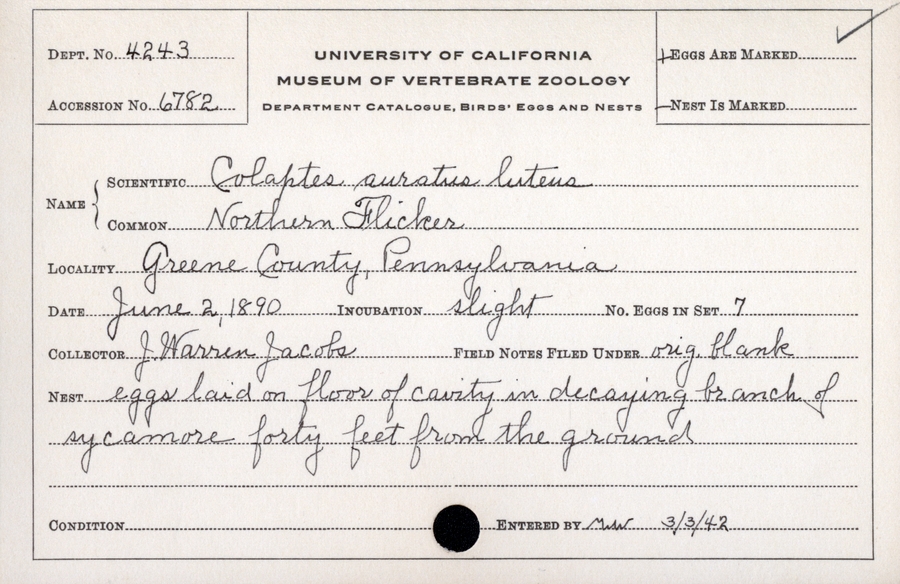 Dept. No. 4243
Accession No. 6782
UNIVERSITY OF CALIFORNIA
MUSEUM OF VERTEBRATE ZOOLOGY
Department Catalogue, Birds' Eggs and Nests
Eggs Are Marked
Nest Is Marked
Name
Scientific Colaptes auratus luteus
Common Northern Flicker
Locality Greene County, Pennsylvania
Date June 2, 1890 Incubation slight No. Eggs in Set 7
Collector J. Warren Jacobs Field Notes Filed Under orig. blank
Nest eggs laid on floor of cavity in decaying branch of
sycamore forty feet from the ground
Condition Entered by 3/3/42